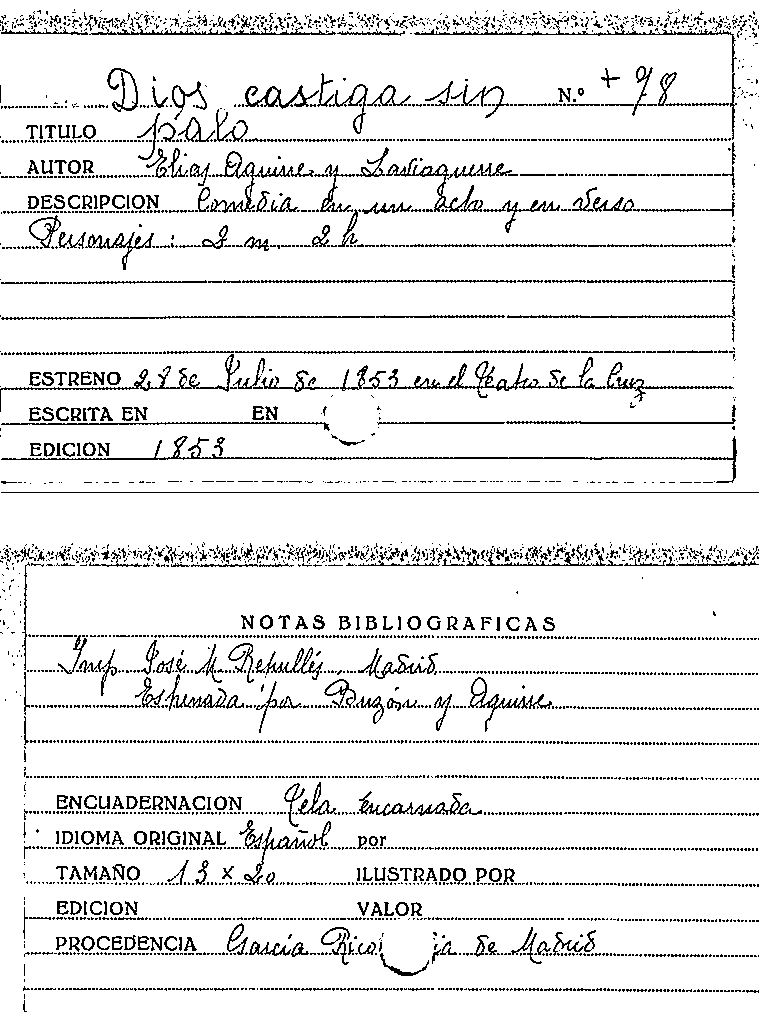 Dios castiga sin N.º + 98
TITULO palo
AUTOR Elias Aguirre y Laviaguerre
DESCRIPCION Comedia en un acto y en verso
Personajes : 2 m. 2 h
ESTRENO 28 de Julio de 1853 en el Teatro de la Cruz
ESCRITA EN EN
EDICION 1853
NOTAS BIBLIOGRAFICAS
Imp José M. Repullés. Madrid
Estrenada por Buzón y Aguirre
ENCUADERNACION Tela Encarnada
IDIOMA ORIGINAL Español por
TAMAÑO 13 x 20 ILUSTRADO POR
EDICION VALOR
PROCEDENCIA García Rico ia de Madrid